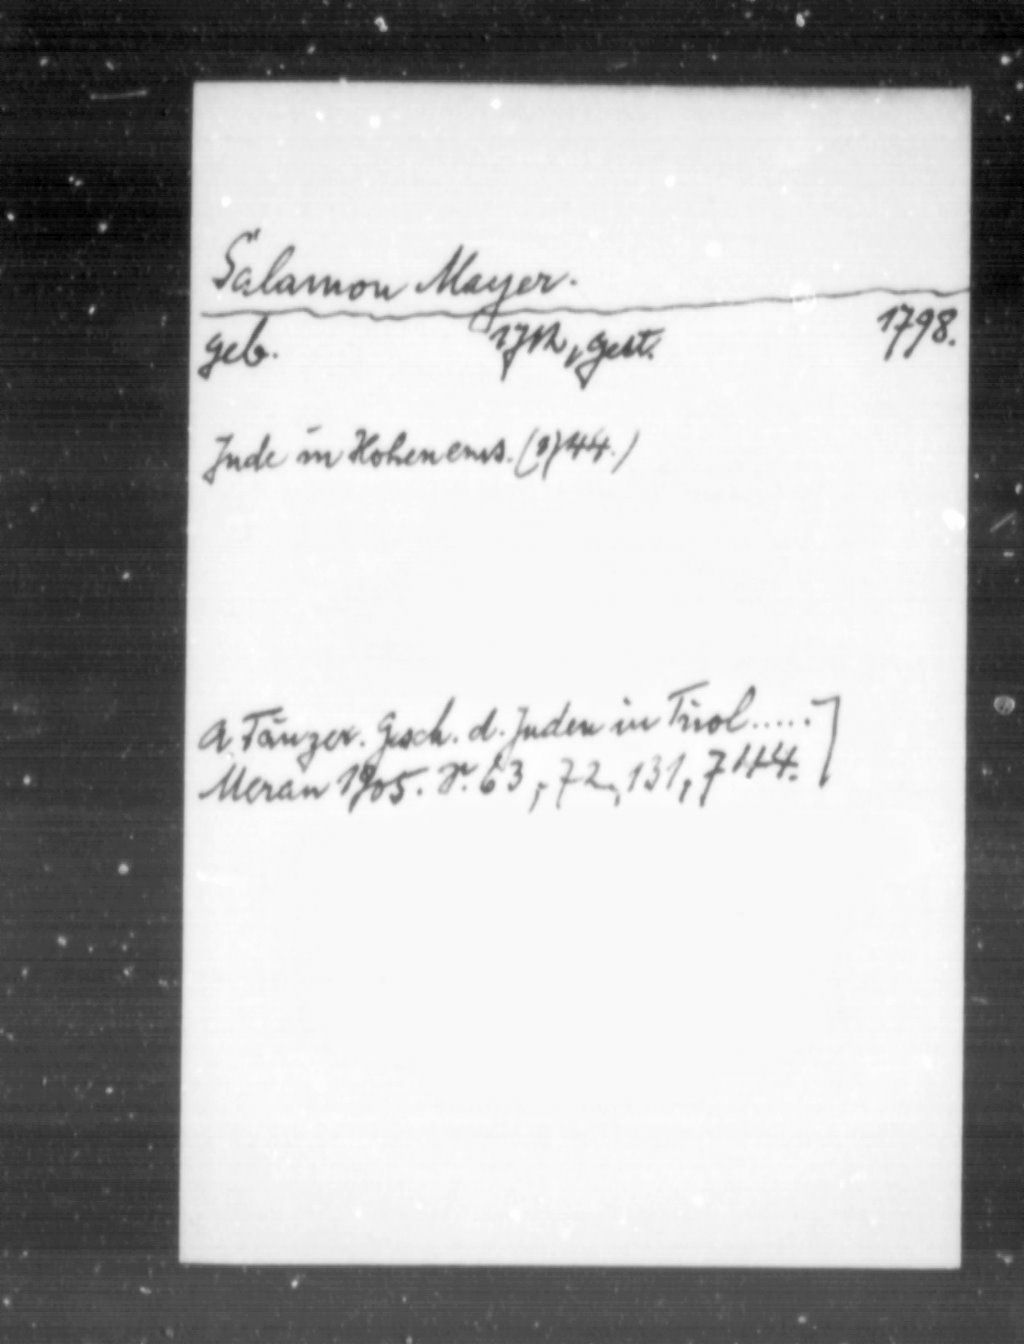 Salamon Mayer.
geb. 1712, gest. 1798.
Jude in Hohenems. (1744.)
A. Tänzer. Gesch. d. Juden in Tirol.....]
Meran 1905. S. 63, 72, 131, 744.